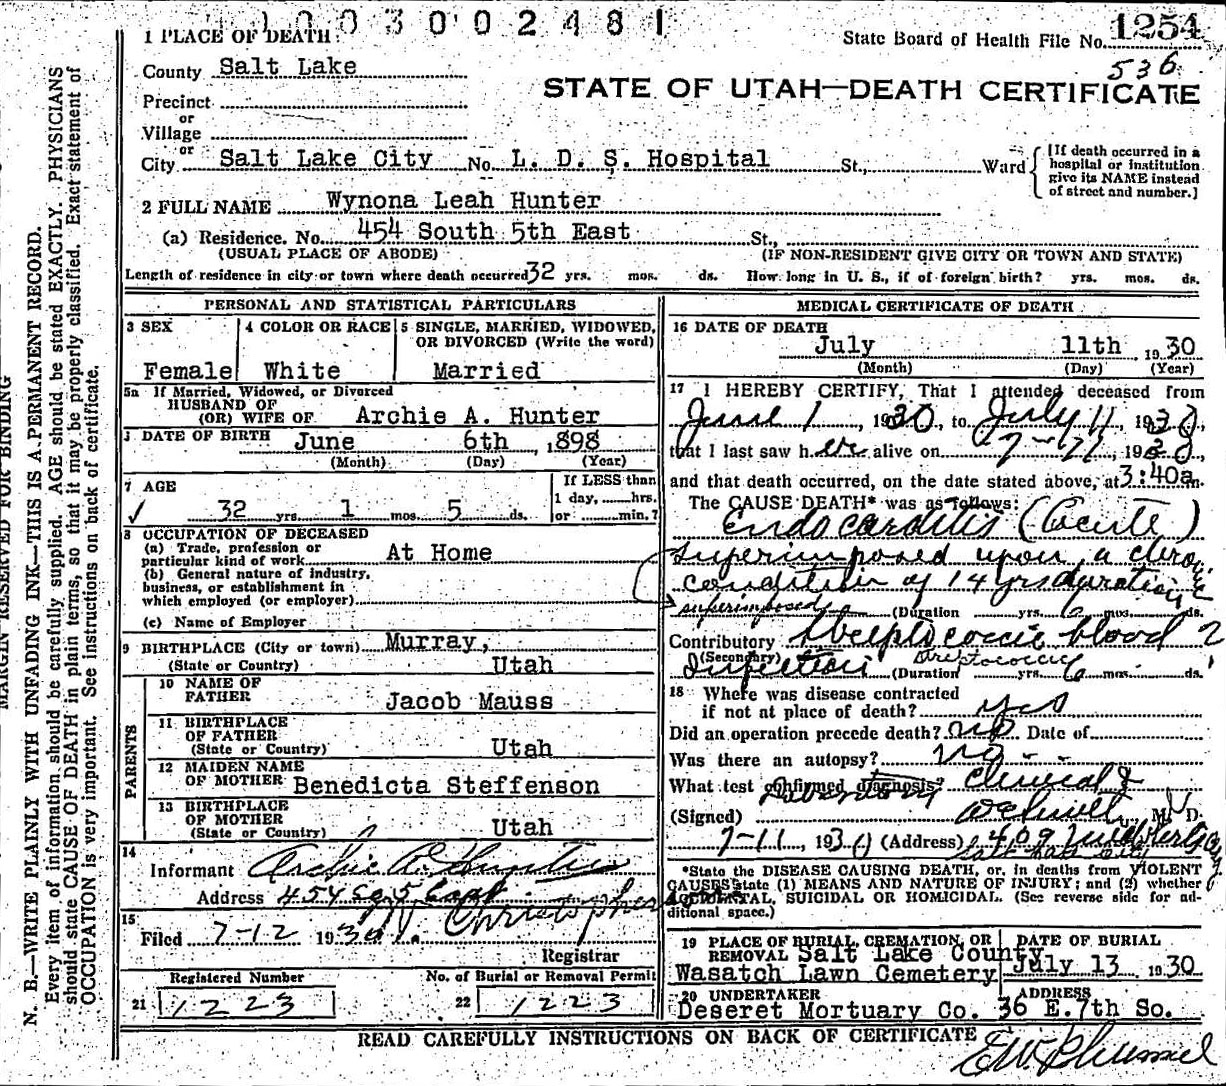 1003002481
1 PLACE OF DEATH:
State Board of Health File No. 1254
County Salt Lake
536
STATE OF UTAH—DEATH CERTIFICATE
Precinct
or
Village
or
City Salt Lake City No. L. D. S. Hospital St., Ward
[If death occurred in a
hospital or institution
give its NAME instead
of street and number.]
2 FULL NAME Wynona Leah Hunter
(a) Residence. No. 454 South 5th East St.,
(USUAL PLACE OF ABODE) (IF NON-RESIDENT GIVE CITY OR TOWN AND STATE)
Length of residence in city or town where death occurred 32 yrs. mos. ds. How long in U. S., if of foreign birth? yrs. mos. ds.
PERSONAL AND STATISTICAL PARTICULARS
3 SEX 4 COLOR OR RACE 5 SINGLE, MARRIED, WIDOWED,
OR DIVORCED (Write the word)
Female White Married
5a If Married, Widowed, or Divorced
HUSBAND OF
(OR) WIFE OF Archie A. Hunter
DATE OF BIRTH June 6th, 1898
(Month) (Day) (Year)
7 AGE If LESS than
1 day, hrs.
32 yrs. 1 mos. 5 ds. or min.?
8 OCCUPATION OF DECEASED
(a) Trade, profession or
particular kind of work At Home
(b) General nature of industry,
business, or establishment in
which employed (or employer)
(c) Name of Employer
9 BIRTHPLACE (City or town) Murray,
(State or Country) Utah
PARENTS
10 NAME OF
FATHER Jacob Mauss
11 BIRTHPLACE
OF FATHER
(State or Country) Utah
12 MAIDEN NAME
OF MOTHER Benedicta Steffenson
13 BIRTHPLACE
OF MOTHER
(State or Country) Utah
14
Informant Archie A. Hunter
Address 454 So. 5 East
15
Filed 7-12 1930 Christopherson
Registrar
Registered Number No. of Burial or Removal Permit
21 1223 22 1223
MEDICAL CERTIFICATE OF DEATH
16 DATE OF DEATH
July 11th, 1930
(Month) (Day) (Year)
17 I HEREBY CERTIFY, That I attended deceased from
June 1, 1930, to July 11, 1930,
that I last saw her alive on 7-11, 1930,
and that death occurred, on the date stated above, at 3:40a m.
The CAUSE DEATH* was as follows:
Endocarditis (Acute)
superimposed upon a chronic
condition of 14 yrs duration
superimposed (Duration yrs. 6 mos. ds.
Contributory Streptococcic blood
(Secondary) Streptococcic
infection (Duration yrs. 6 mos. ds.
18 Where was disease contracted
if not at place of death? yes
Did an operation precede death? no Date of
Was there an autopsy? no
What test confirmed diagnosis? Clinical &
Laboratory
(Signed) M. D.
7-11, 1930 (Address) 409
Salt Lake City
*State the DISEASE CAUSING DEATH, or, in deaths from VIOLENT
CAUSES state (1) MEANS AND NATURE OF INJURY; and (2) whether
ACCIDENTAL, SUICIDAL OR HOMICIDAL. (See reverse side for ad-
ditional space.)
19 PLACE OF BURIAL, CREMATION, OR DATE OF BURIAL
REMOVAL Salt Lake County
Wasatch Lawn Cemetery July 13 1930
20 UNDERTAKER ADDRESS
Deseret Mortuary Co. 36 E. 7th So.
READ CAREFULLY INSTRUCTIONS ON BACK OF CERTIFICATE
MARGIN RESERVED FOR BINDING
N. B.—WRITE PLAINLY WITH UNFADING INK—THIS IS A PERMANENT RECORD.
Every item of information should be carefully supplied. AGE should be stated EXACTLY. PHYSICIANS
should state CAUSE OF DEATH in plain terms, so that it may be properly classified. Exact statement of
OCCUPATION is very important. See instructions on back of certificate.